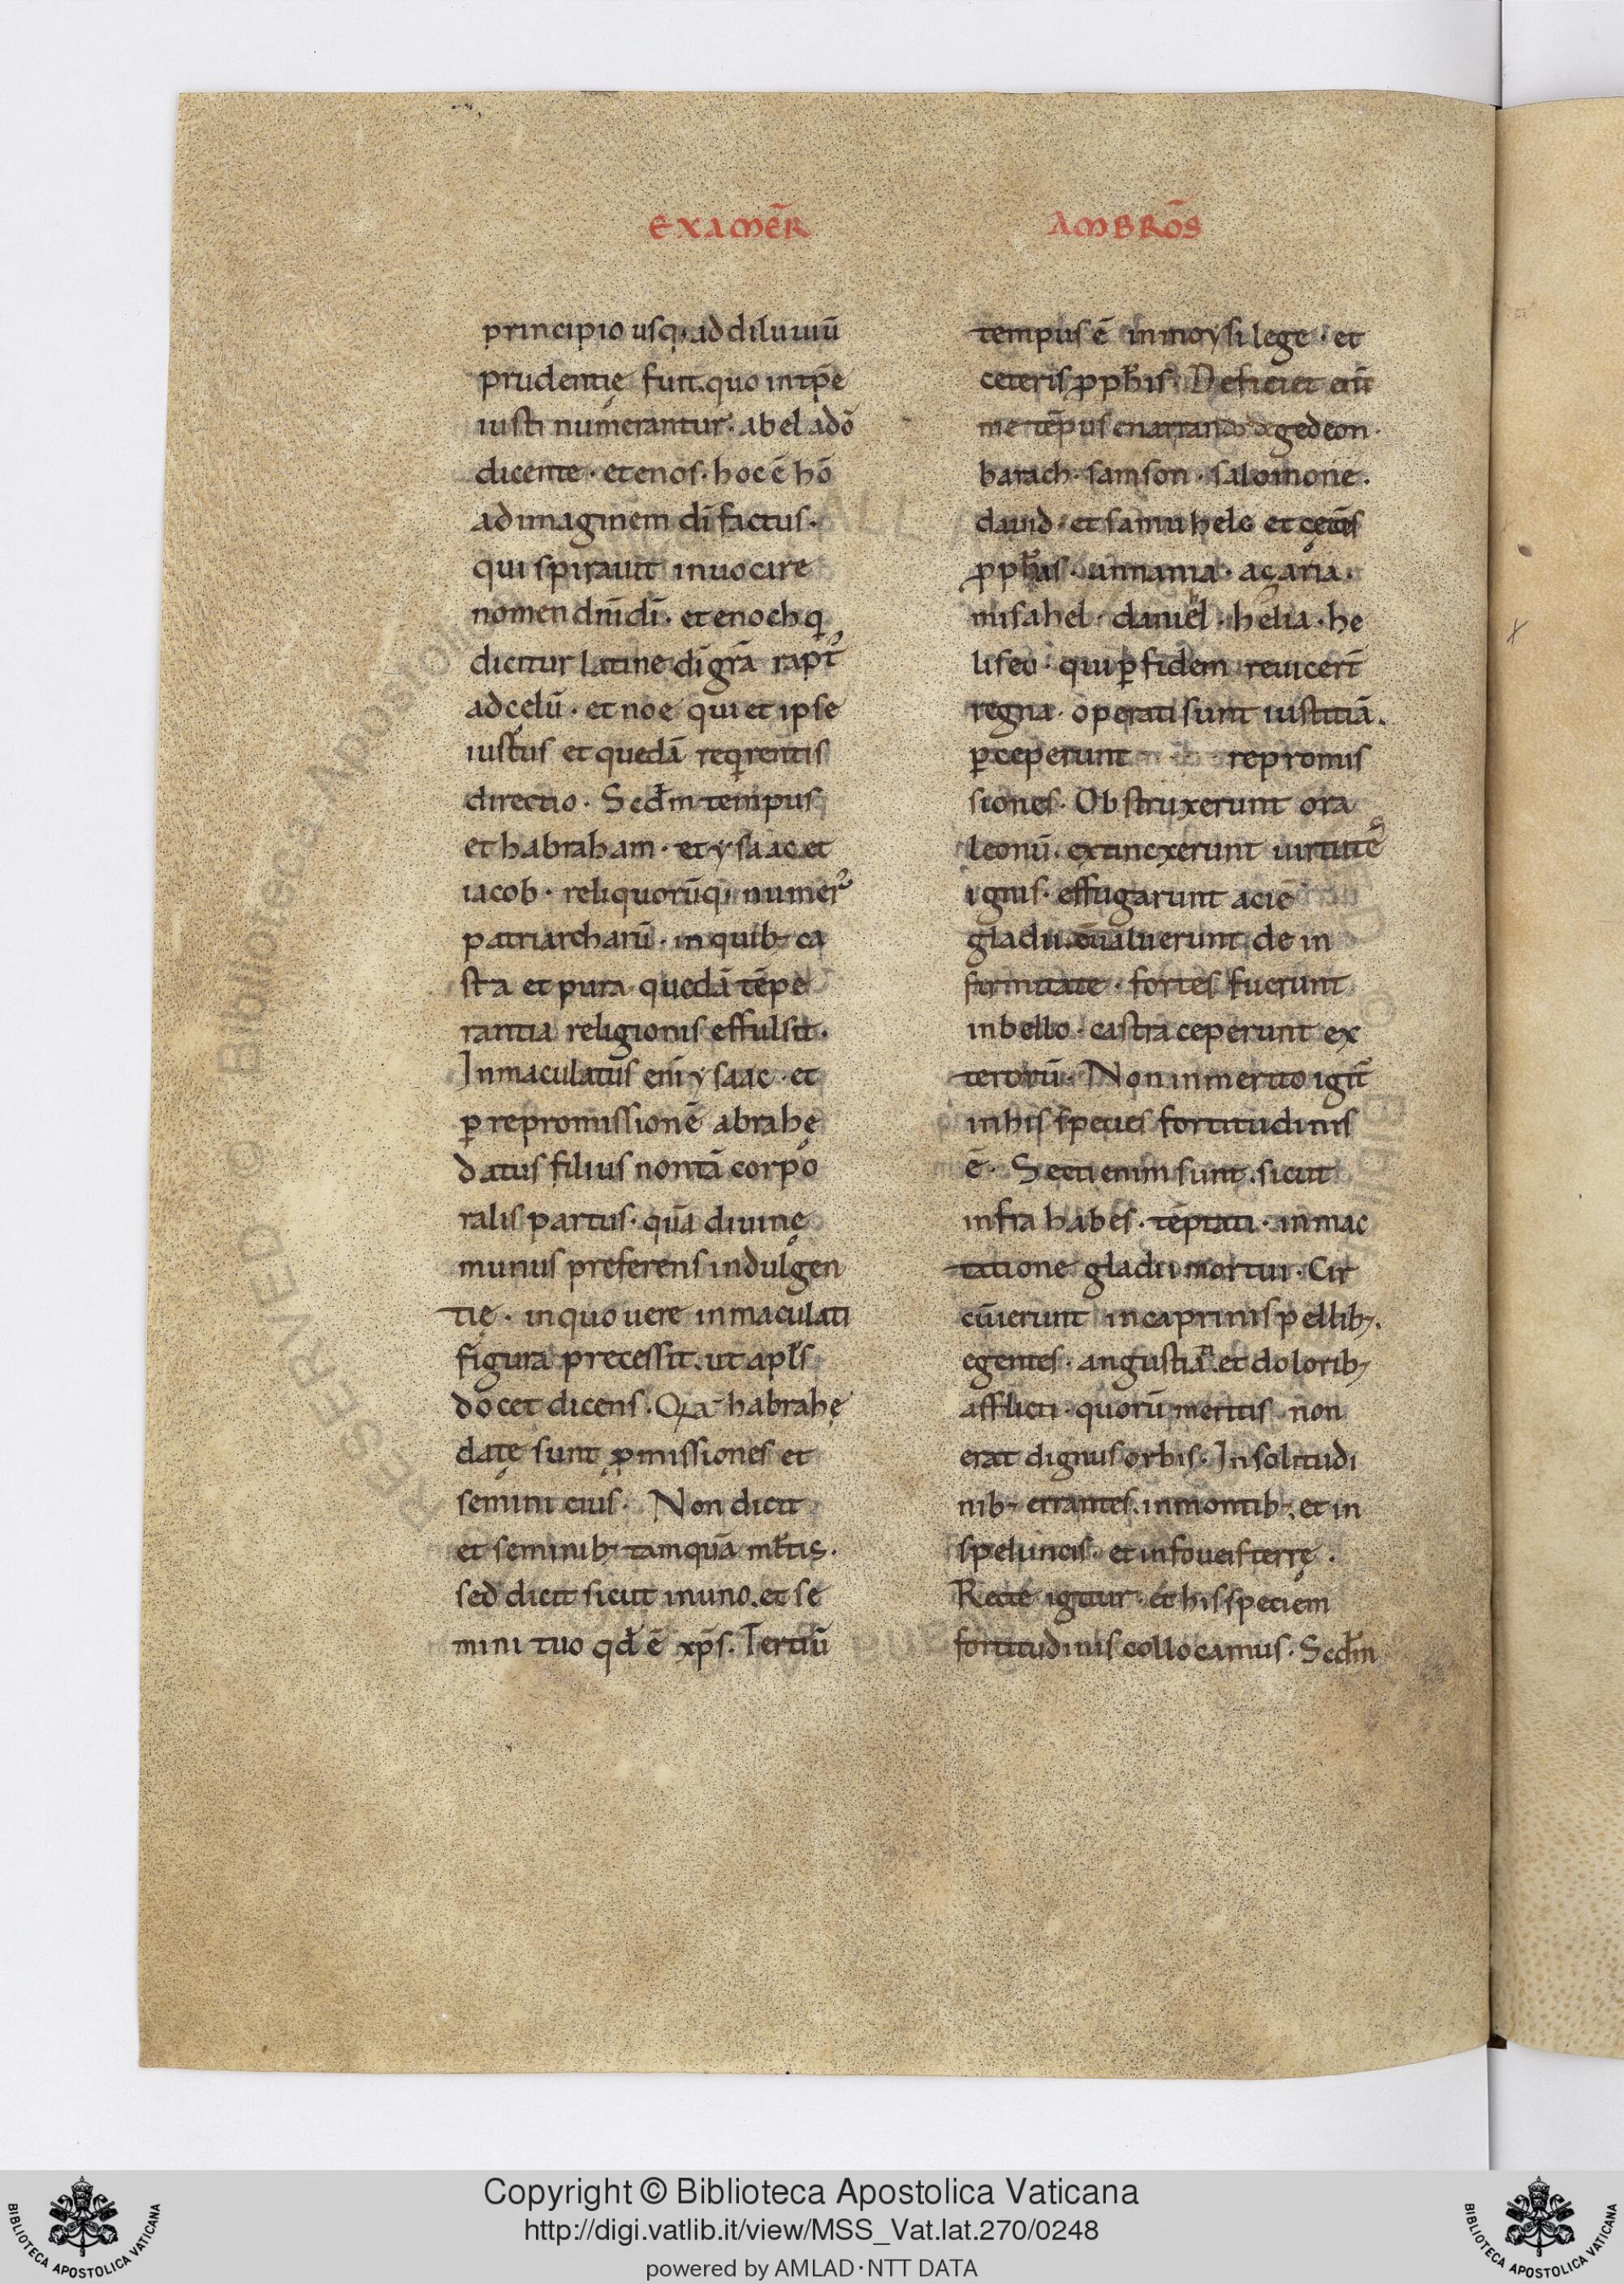 EXAMER̄
AMBRO̅S
principio usq; ad diluuiū
prudentię fuit. quo in tp̄e
iusti numerantur. abel a dō
dicente. et enos. hoc ē hō
ad imaginem dī factus.
qui spirauit inuocare
nomen dn̄i dī. et enoch q
dicitur latine dī gr̄a rapt᷒
ad cęlū. et noe qui et ipse
iustus et quedā reqrentis
directio. Scd̄m tempus
et habraham. et ysaac et
iacob. reliquorūq; numer᷒
patriarcharū. in quib; ca
sta et pura quedā tēpe
rantia religionis effulsit.
Inmaculatus eni̅ ysaac. et
ꝑ repromissionē abrahę
datus filius non tā corpo
ralis partus. quā diuinę
munus preferens indulgen
tię. in quo uere inmaculati
figura precessit. ut apl̄s
docet dicens. Qa habrahę
datę sunt ꝓmissiones et
semini eius. Non dicit
et seminib; tamquā ml̄tis.
sed dicit sicut in uno. et se
mini tuo qd̄ ē xp̄s. Tertiū
tempus ē in moysi lege. et
ceteris ꝓph̄is. Deficiet eni̅
me tēpus enarrando de gedeon.
barach. samson. salomone.
dauid. et samuhele et cęteris
ꝓph̄is. annania. açaria.
misahel. daniel. helia. he
liseo. qui ꝑ fidem reuicer̄t
regna. operati sunt iustitiā.
ꝑceperunt repromis
siones. Obstruxerunt ora
leonū. extincxerunt uirtutē
ignis. effugarunt aciē
gladii. cōualuerunt de in
firmitate. fortes fuerunt
in bello. castra ceperunt ex
terorū. Non inmerito igit̄
in his species fortitudinis
ē. Secti enim sunt. sicut
infra habes. tēptati. in mac
tatione gladii mortui. Cir
cūierunt in caprinis pellib;.
egentes. angustia et dolorib;
afflicti. quorū meritis non
erat dignus orbis. In solitudi
nib; errantes. in montib;. et in
speluncis. et in foueis terrę.
Recte igitur et his speciem
fortitudinis collocamus. Scd̄m
Copyright © Biblioteca Apostolica Vaticana
http://digi.vatlib.it/view/MSS_Vat.lat.270/0248
powered by AMLAD·NTT DATA
BIBLIOTECA APOSTOLICA VATICANA
BIBLIOTECA APOSTOLICA VATICANA